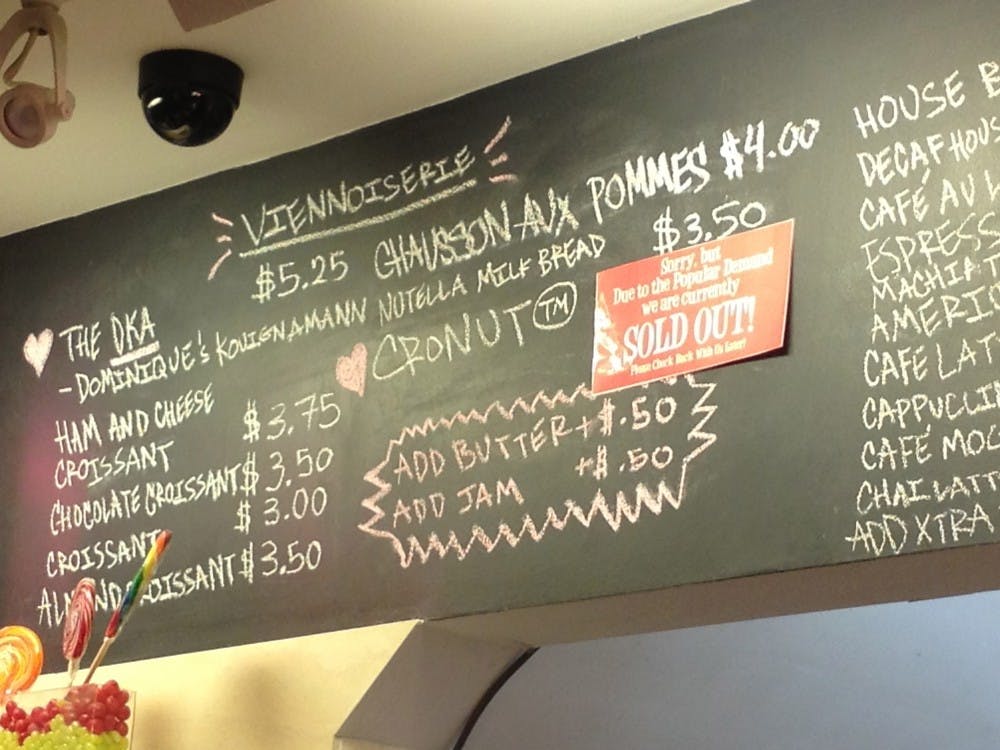 VIENNOISERIE
THE DKA $5.25
-DOMINIQUE'S KOUIGNAMANN
HAM AND CHEESE
CROISSANT $3.75
CHOCOLATE CROISSANT $3.50
CROISSANT $3.00
ALMOND CROISSANT $3.50
CHAUSSON AUX POMMES $4.00
NUTELLA MILK BREAD $3.50
CRONUT TM
Sorry, but
Due to the Popular Demand
we are currently
SOLD OUT!
Please Check Back With Us Later!
ADD BUTTER +$.50
ADD JAM +$.50
HOUSE B
DECAF HOUS
CAFÉ AU L
ESPRESS
MACHIAT
AMERIC
CAFE LATT
CAPPUCCIN
CAFÉ MOC
CHAI LATT
ADD XTRA